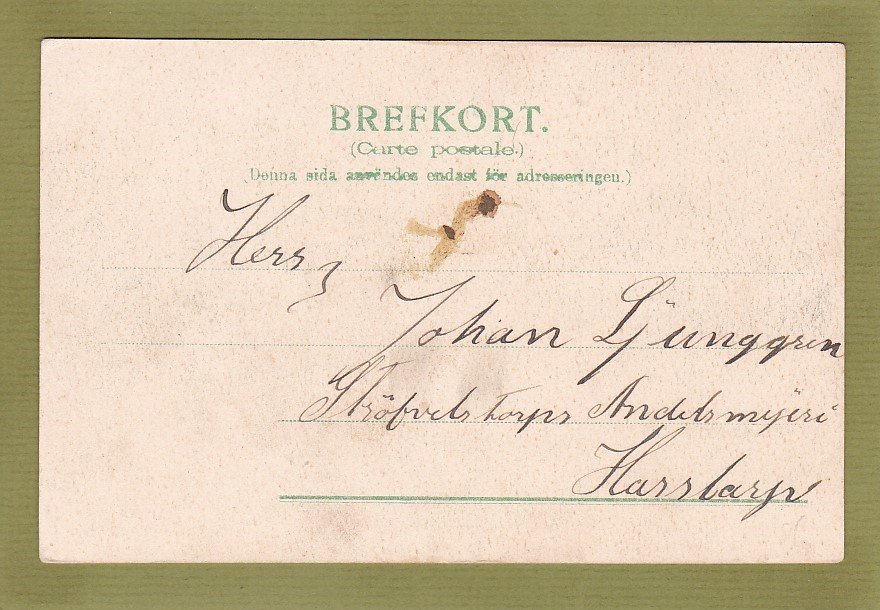 BREFKORT.
(Carte postale.)
(Denna sida användes endast för adresseringen.)
Herr
Johan Ljunggren
Ströfvelstorps Andelsmejeri